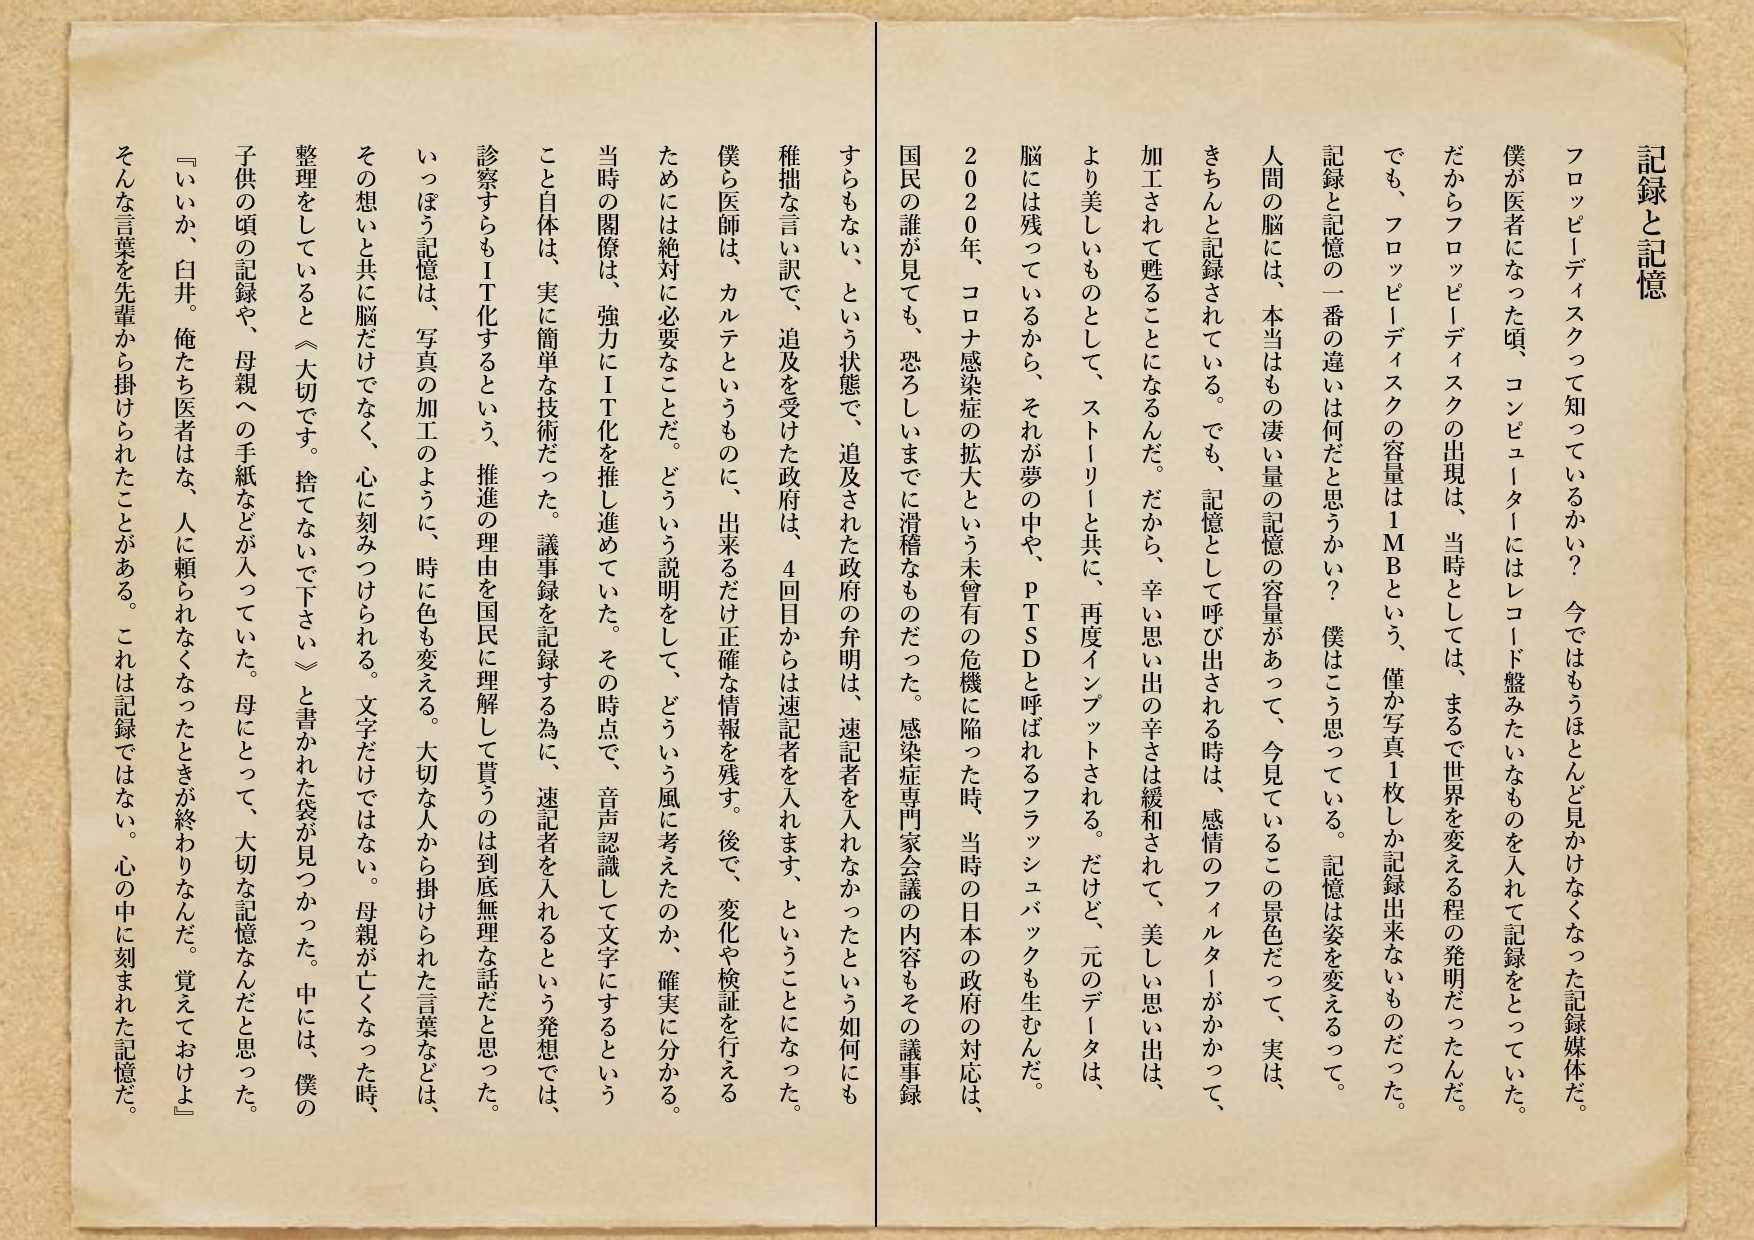 記録と記憶
フロッピーディスクって知っているかい？　今ではもうほとんど見かけなくなった記録媒体だ。
僕が医者になった頃、コンピューターにはレコード盤みたいなものを入れて記録をとっていた。
だからフロッピーディスクの出現は、当時としては、まるで世界を変える程の発明だったんだ。
でも、フロッピーディスクの容量は１ＭＢという、僅か写真１枚しか記録出来ないものだった。
記録と記憶の一番の違いは何だと思うかい？　僕はこう思っている。記憶は姿を変えるって。
人間の脳には、本当はもの凄い量の記憶の容量があって、今見ているこの景色だって、実は、
きちんと記録されている。でも、記憶として呼び出される時は、感情のフィルターがかかって、
加工されて甦ることになるんだ。だから、辛い思い出の辛さは緩和されて、美しい思い出は、
より美しいものとして、ストーリーと共に、再度インプットされる。だけど、元のデータは、
脳には残っているから、それが夢の中や、ｐＴＳＤと呼ばれるフラッシュバックも生むんだ。
２０２０年、コロナ感染症の拡大という未曾有の危機に陥った時、当時の日本の政府の対応は、
国民の誰が見ても、恐ろしいまでに滑稽なものだった。感染症専門家会議の内容もその議事録
すらもない、という状態で、追及された政府の弁明は、速記者を入れなかったという如何にも
稚拙な言い訳で、追及を受けた政府は、４回目からは速記者を入れます、ということになった。
僕ら医師は、カルテというものに、出来るだけ正確な情報を残す。後で、変化や検証を行える
ためには絶対に必要なことだ。どういう説明をして、どういう風に考えたのか、確実に分かる。
当時の閣僚は、強力にＩＴ化を推し進めていた。その時点で、音声認識して文字にするという
こと自体は、実に簡単な技術だった。議事録を記録する為に、速記者を入れるという発想では、
診察すらもＩＴ化するという、推進の理由を国民に理解して貰うのは到底無理な話だと思った。
いっぽう記憶は、写真の加工のように、時に色も変える。大切な人から掛けられた言葉などは、
その想いと共に脳だけでなく、心に刻みつけられる。文字だけではない。母親が亡くなった時、
整理をしていると《大切です。捨てないで下さい》と書かれた袋が見つかった。中には、僕の
子供の頃の記録や、母親への手紙などが入っていた。母にとって、大切な記憶なんだと思った。
『いいか、臼井。俺たち医者はな、人に頼られなくなったときが終わりなんだ。覚えておけよ』
そんな言葉を先輩から掛けられたことがある。これは記録ではない。心の中に刻まれた記憶だ。